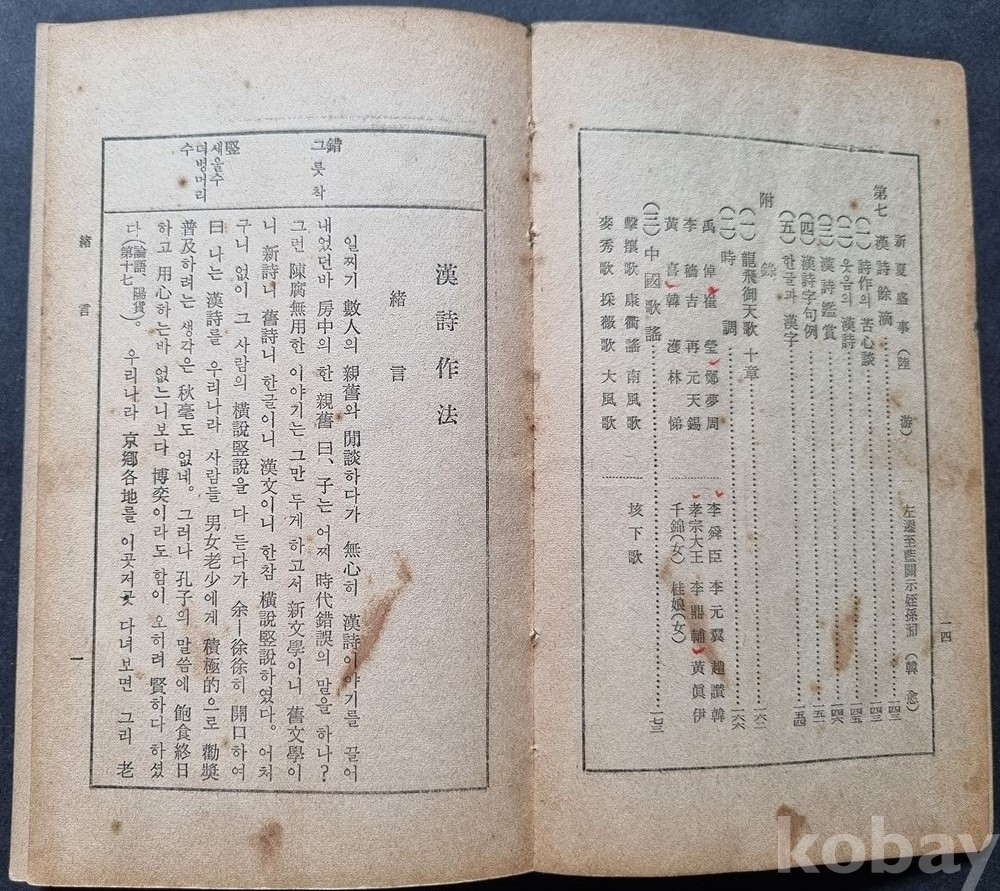 一四
新夏盛事(陸 游) 左遷至藍關示姪孫湘(韓 愈)
第七 漢詩餘滴 一四三
(一)詩作의 苦心談 一四三
(二)웃음의 漢詩 一四五
(三)漢詩鑑賞 一四六
(四)漢詩字句例 一五一
(五)한글과 漢字 一五四
附 錄
(一)龍飛御天歌 十章 一六二
(二)時 調 一六六
禹 倬 崔 瑩 鄭夢周 李舜臣 李元翼 趙讚韓
李 穡 吉 再 元天錫 孝宗大王 李鼎輔 黃眞伊
黃 喜 韓 濩 林 悌 千錦(女) 桂娘(女)
(三)中國歌謠 一七三
擊壤歌 康衢謠 南風歌 垓下歌
麥秀歌 採薇歌 大風歌
錯
그릇착
竪
세울수
더벙머리
수
漢詩作法
緖 言
일찌기 數人의 親舊와 閒談하다가 無心히 漢詩이야기를 끌어
내었던바 房中의 한 親舊 曰、子는 어찌 時代錯誤의 말을 하나?
그런 陳腐無用한 이야기는 그만 두게 하고서 新文學이니 舊文學이
니 新詩니 舊詩니 한글이니 漢文이니 한참 橫說竪說하였다。어처
구니 없이 그 사람의 橫說竪說을 다 듣다가 余ㅣ徐徐히 開口하여
曰 나는 漢詩를 우리나라 사람들 男女老少에게 積極的으로 勸奬
普及하려는 생각은 秋毫도 없네。그러나 孔子의 말씀에 飽食終日
하고 用心하는바 없느니보다 博奕이라도 함이 오히려 賢하다 하셨
다(論語、陽貨第十七)。 우리나라 京鄕各地를 이곳저곳 다녀보면 그리 老
緖 言
一
kobay